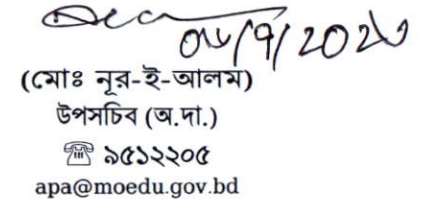 (মোঃ নূর-ই-আলম)
উপসচিব (অ.দা.)
☏ ৯৫১২২০৫
apa@moedu.gov.bd